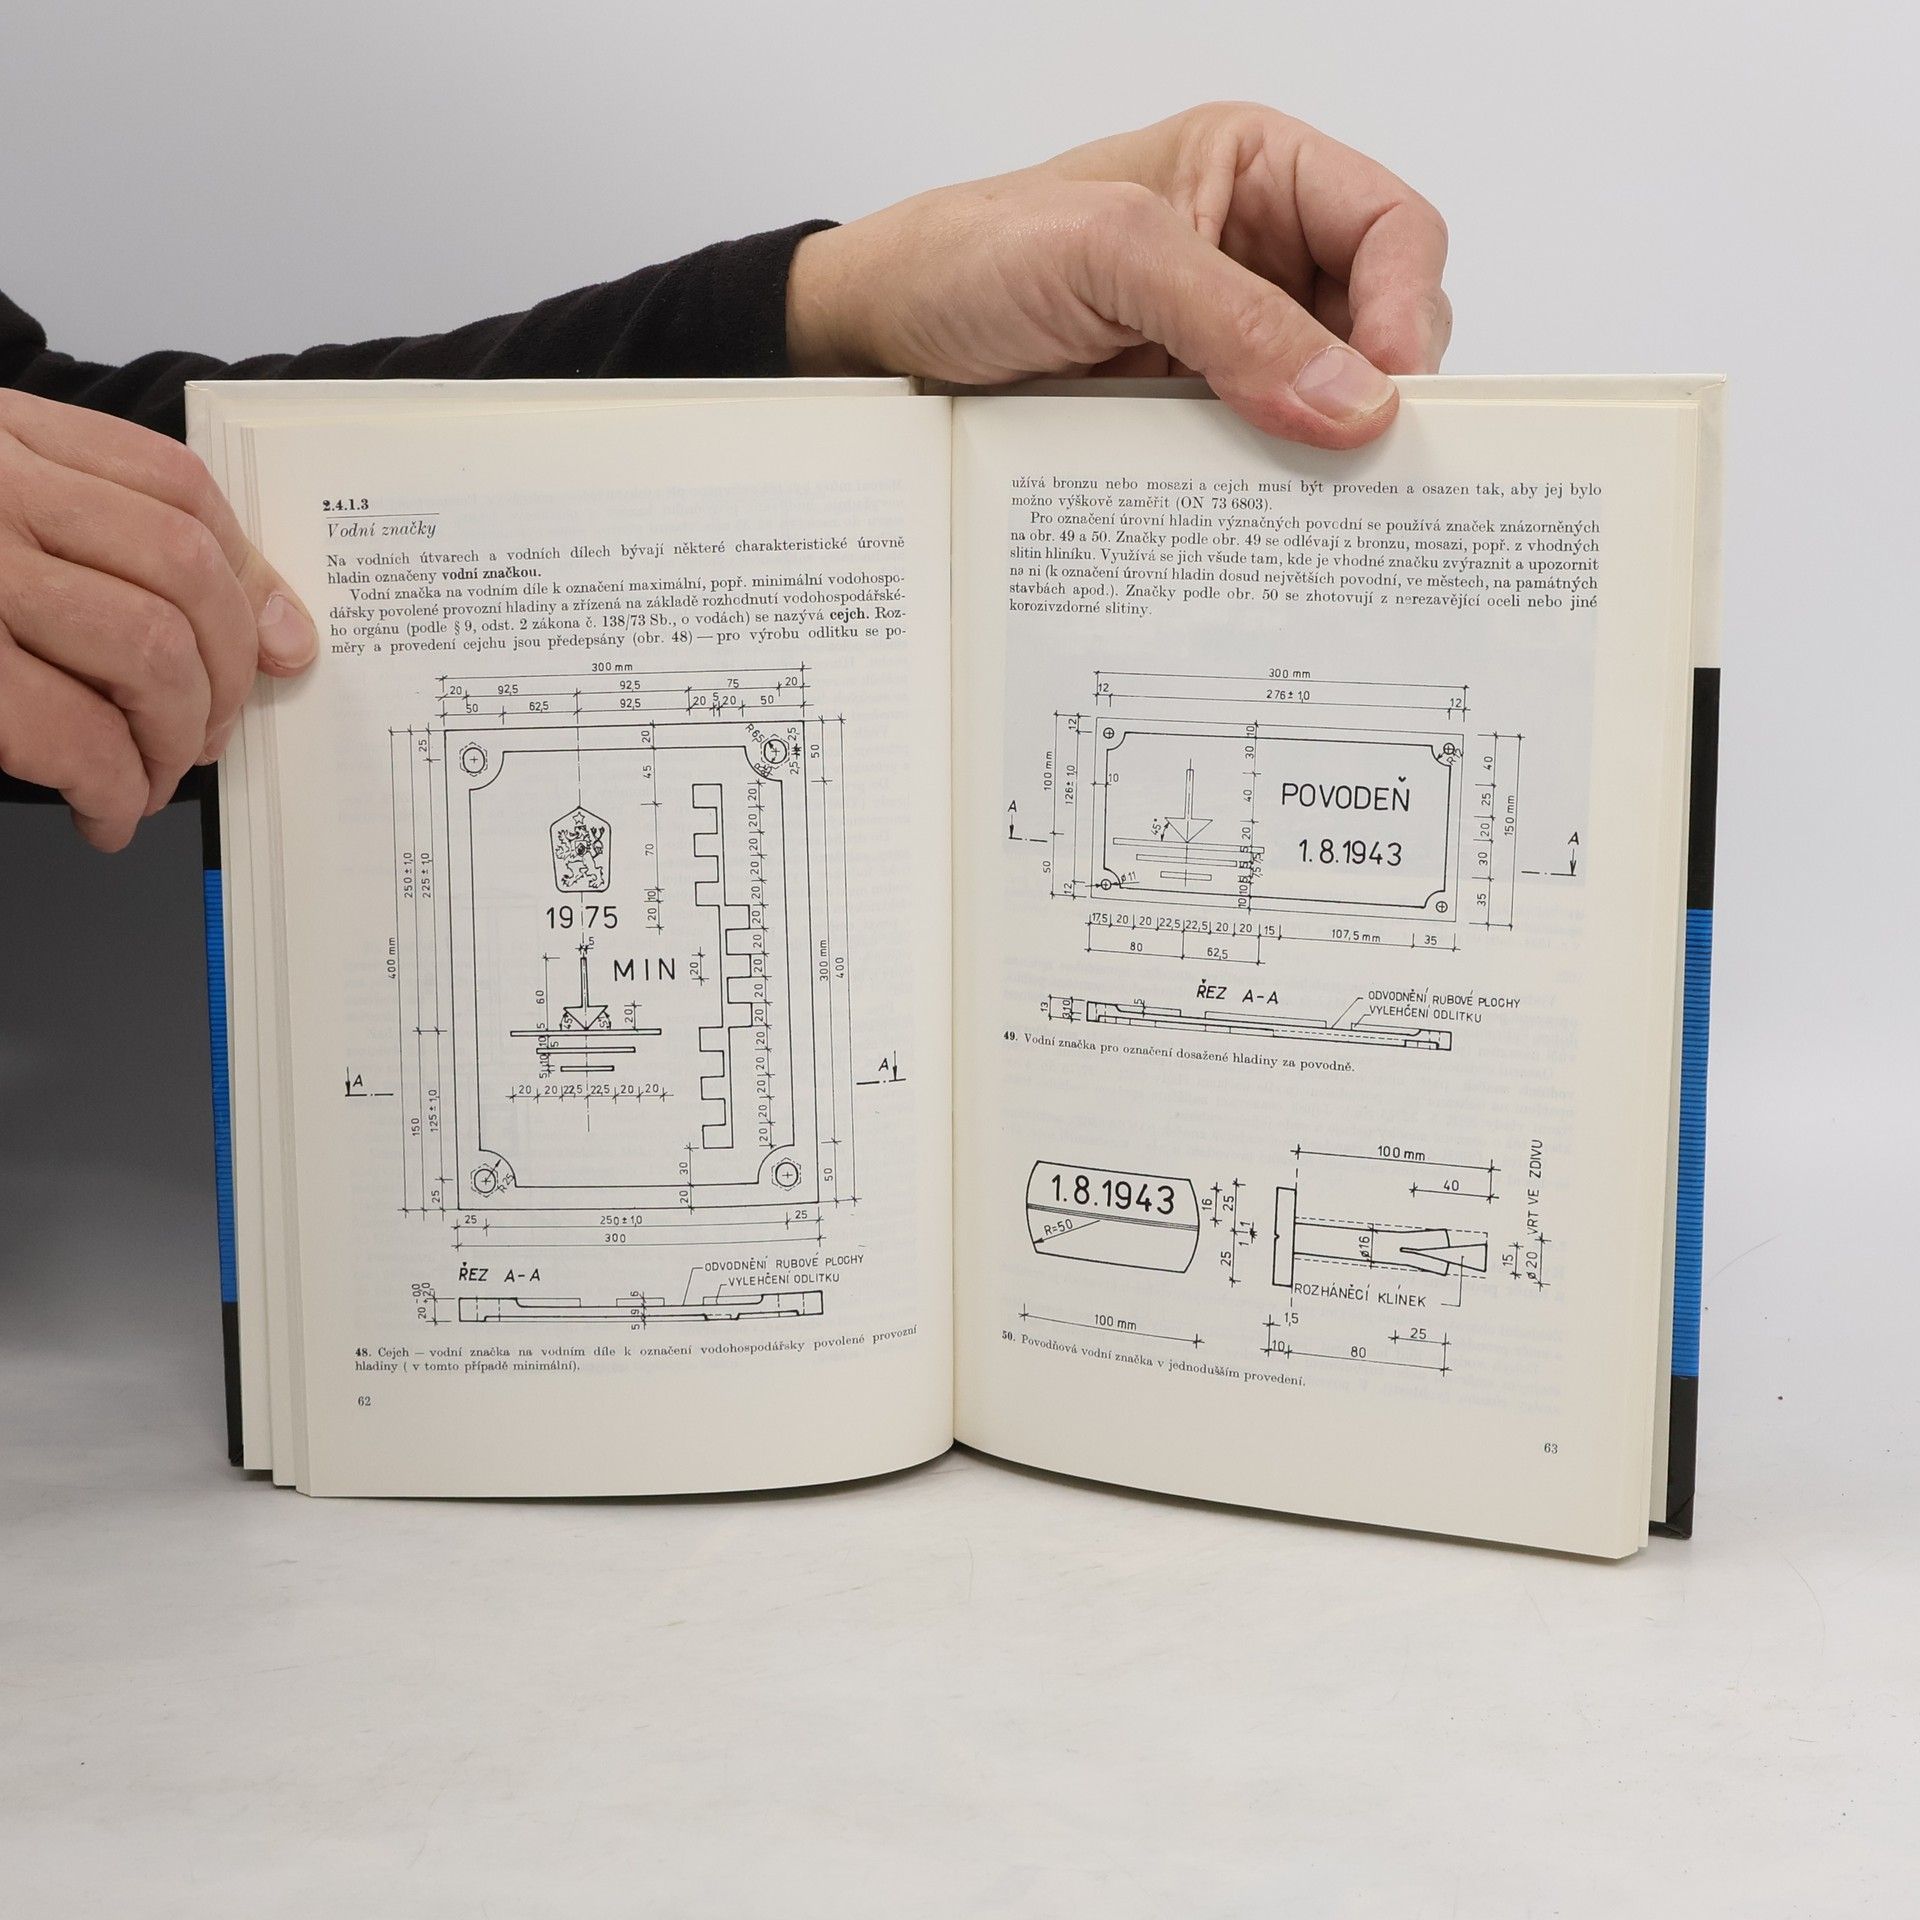 2.4.1.3
Vodní značky
Na vodních útvarech a vodních dílech bývají některé charakteristické úrovně
hladin označeny vodní značkou.
Vodní značka na vodním díle k označení maximální, popř. minimální vodohospo-
dářsky povolené provozní hladiny a zřízená na základě rozhodnutí vodohospodářské-
ho orgánu (podle § 9, odst. 2 zákona č. 138/73 Sb., o vodách) se nazývá cejch. Roz-
měry a provedení cejchu jsou předepsány (obr. 48) — pro výrobu odlitku se po-
300 mm
20 92,5 92,5 75 20
50 62,5 92,5 20 5 20 50
25
20
45
70
10
20
R65
2,5
50
250 ± 1,0
225 ± 1,0
400 mm
300 mm
400
1975
5
MIN
20
60
45°
20
20 20 22,5 22,5 20 20
A
A
150
125 ± 1,0
25
R25
30
20
50
25 250 ± 1,0 25
300
ŘEZ A-A
ODVODNĚNÍ RUBOVÉ PLOCHY
VYLEHČENÍ ODLITKU
48. Cejch — vodní značka na vodním díle k označení vodohospodářsky povolené provozní
hladiny ( v tomto případě minimální).
62
užívá bronzu nebo mosazi a cejch musí být proveden a osazen tak, aby jej bylo
možno výškově zaměřit (ON 73 6803).
Pro označení úrovní hladin význačných povodní se používá značek znázorněných
na obr. 49 a 50. Značky podle obr. 49 se odlévají z bronzu, mosazi, popř. z vhodných
slitin hliníku. Využívá se jich všude tam, kde je vhodné značku zvýraznit a upozornit
na ni (k označení úrovní hladin dosud největších povodní, ve městech, na památných
stavbách apod.). Značky podle obr. 50 se zhotovují z nerezavějící oceli nebo jiné
korozivzdorné slitiny.
300 mm
12 276 ± 1,0 12
12
100 mm
126 ± 1,0
10
10
30
40
20
45°
POVODEŇ
1.8.1943
40
25
20
30
35
150 mm
A
A
50
12
ø11
17,5 20 20 22,5 22,5 20 20 15 107,5 mm 35
80 62,5
ŘEZ A-A
ODVODNĚNÍ RUBOVÉ PLOCHY
VYLEHČENÍ ODLITKU
13
5
49. Vodní značka pro označení dosažené hladiny za povodně.
1.8.1943
R=50
16
25
1
25
100 mm
100 mm
40
VRT VE ZDIVU
ø16
15
ø20
ROZHÁNĚCÍ KLÍNEK
1,5
25
10 80
50. Povodňová vodní značka v jednodušším provedení.
63